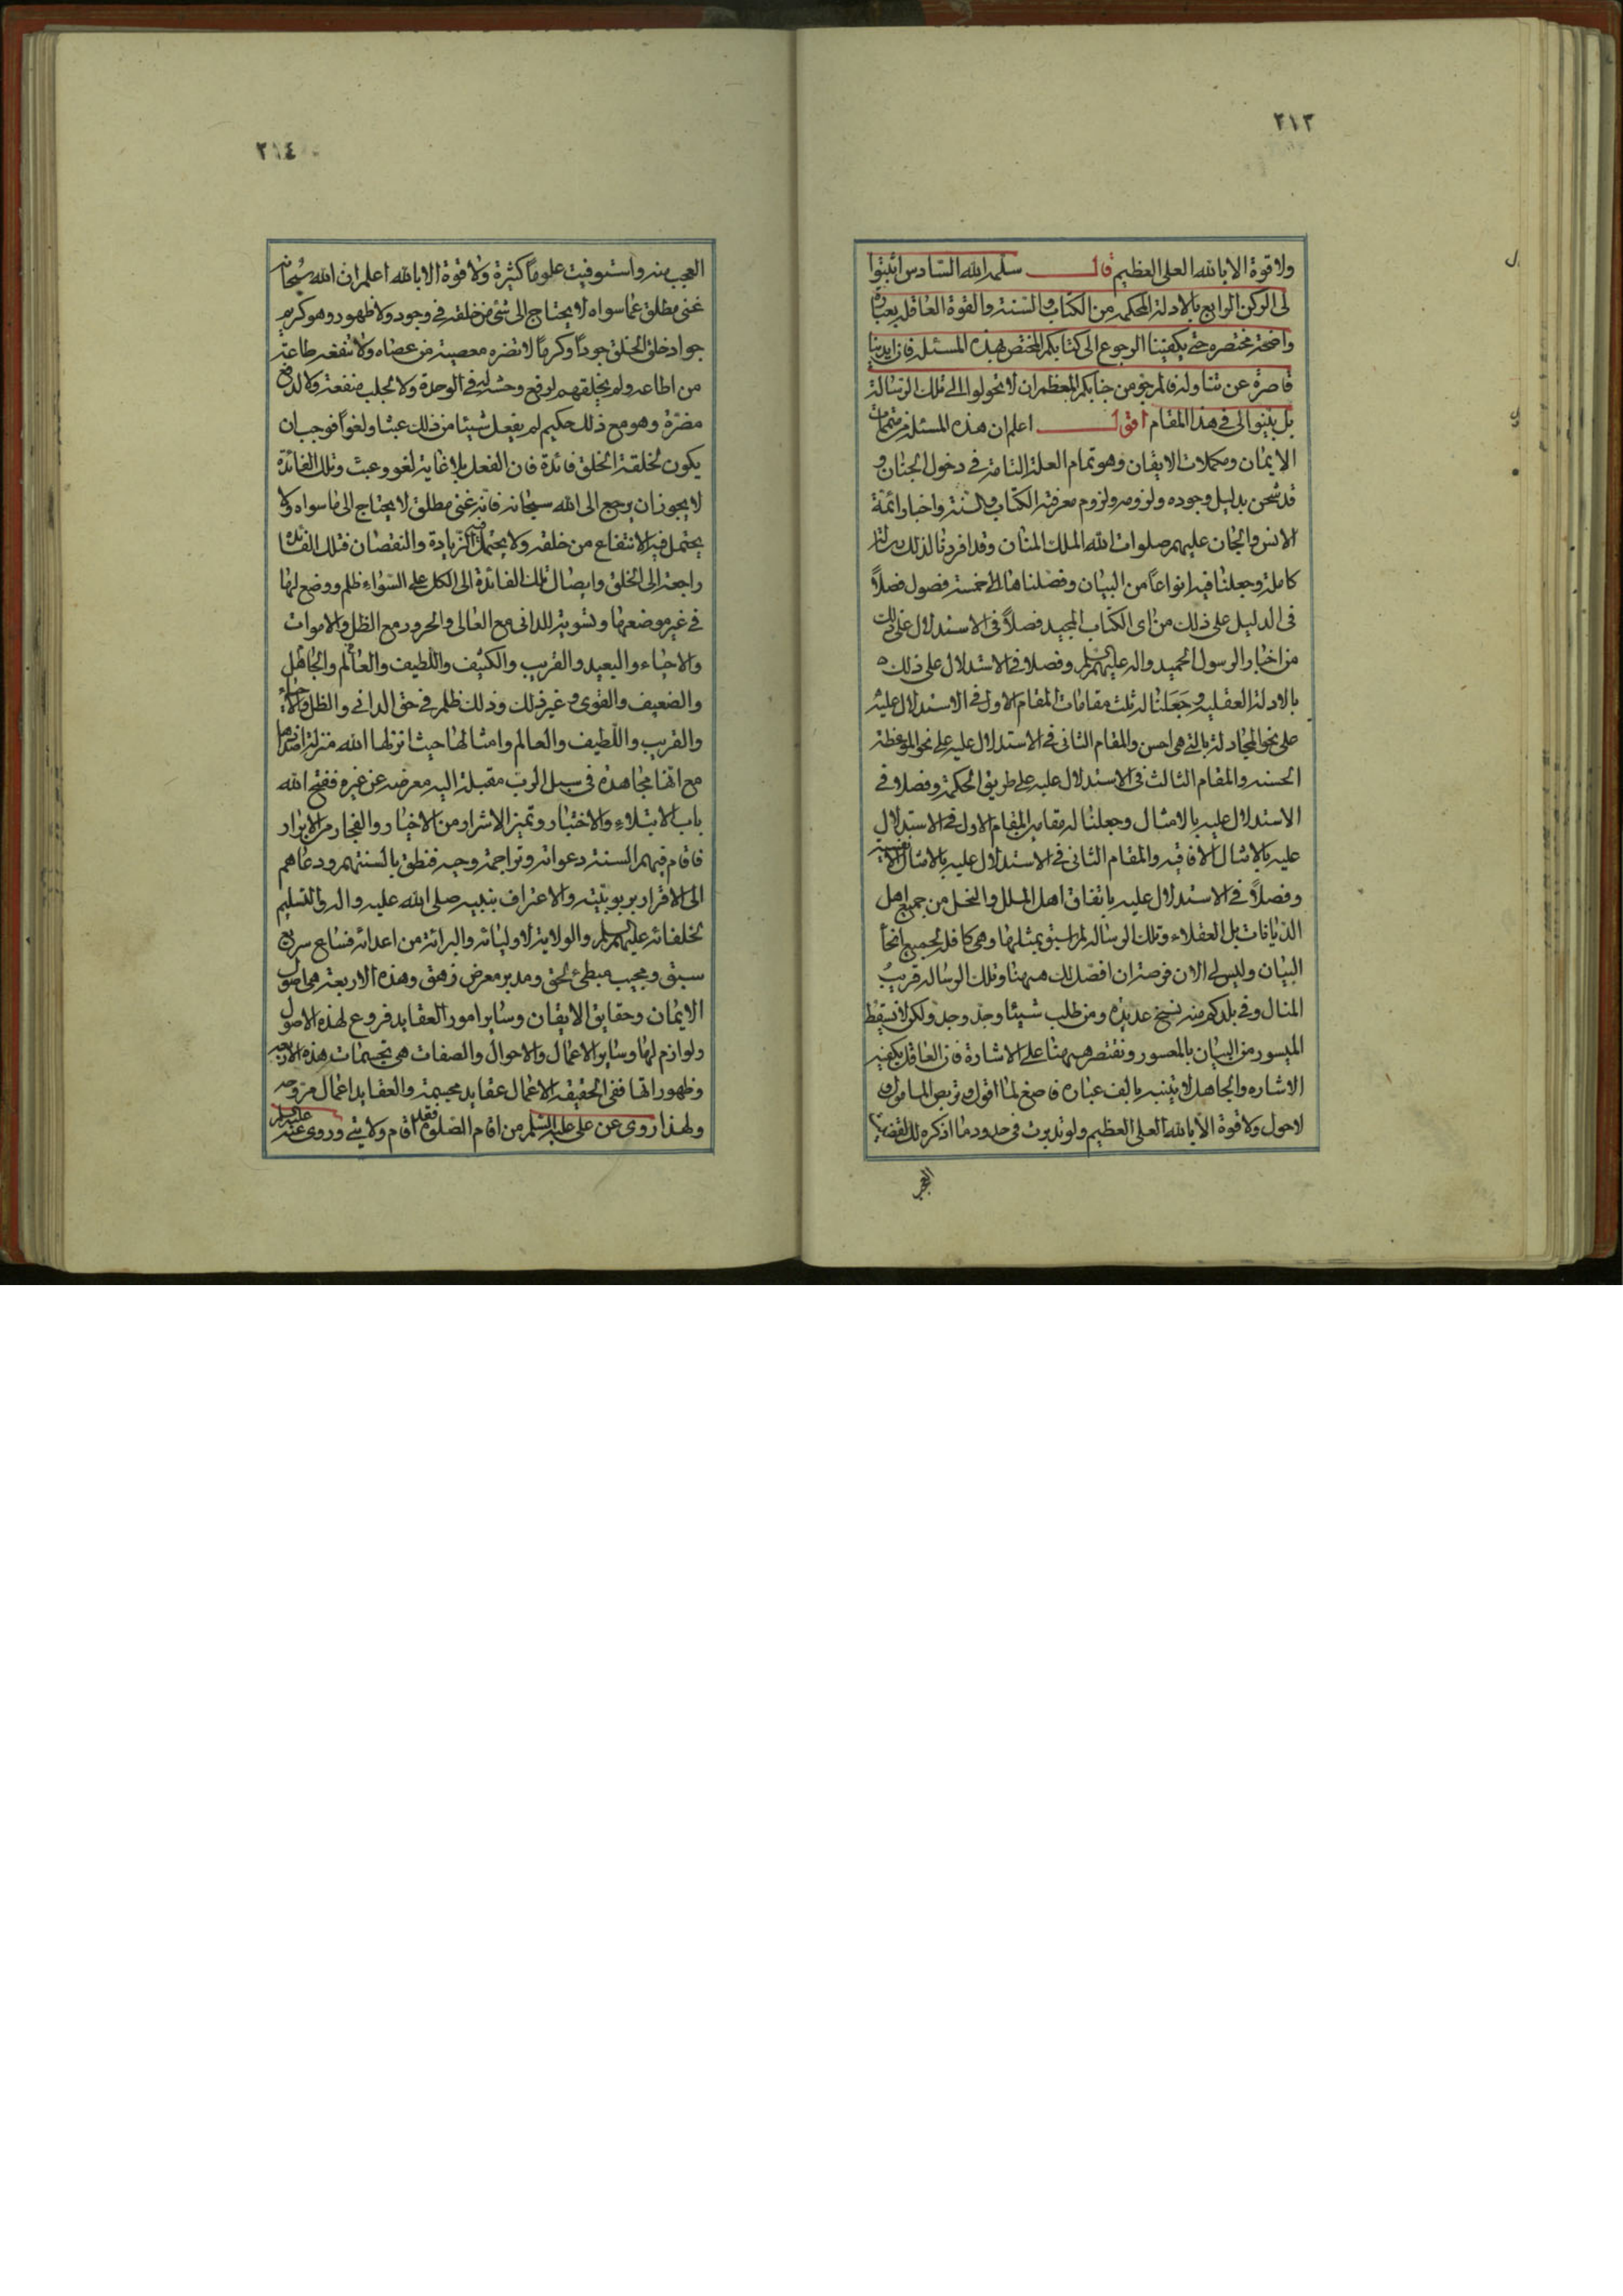 ٢١٣
ولا قوة الا بالله العلي العظيم قال سلمه الله السادس اثبتوا
لى الركن الرابع بالادلة المحكمه من الكتاب والسنة والقوة العاقلة بعبارة
واضحة مختصره حتى يكفينا الرجوع الى كتابكم المختص بهذه المسئلة فان ايدينا
قاصرة عن تناوله فالمرجو من جنابكم المعظم ان لا تحولوا الى تلك الرسالة
بل بينوا لى في هذا المقام اقول اعلم ان هذه المسئلة من متممات
الايمان ومكملات الايقان وهو تمام العلة التامة في دخول الجنان و
قد شحن بدليل وجوده ولزومه ولزوم معرفته الكتاب والسنة واخبار ائمة
الانس والجان عليهم صلوات الله الملك المنان وقد افردنا لذلك رسالة
كاملة وجعلنا فيه انواعاً من البيان وفصلناها الى خمسة فصول فصلاً
في الدليل على ذلك من اى الكتاب المجيد فصلاً في الاستدلال على ذلك
من اخبار الرسول الحميد واله عليهم السلم وفصلا في الاستدلال على ذلك
بالادلة العقليه وجعلنا له ثلث مقامات المقام الاول في الاستدلال عليه
على نحو المجادلة بالتي هي احسن والمقام الثاني في الاستدلال عليه على نحو الموعظة
الحسنه والمقام الثالث في الاستدلال عليه على طريق الحكمة وفصلا في
الاستدلال عليه بالامثال وجعلنا له مقامين المقام الاول في الاستدلال
عليه بالامثال الافاقيه والمقام الثاني في الاستدلال عليه بالامثال الانفسية
وفصلاً في الاستدلال عليه باتفاق اهل الملل والنحل من جميع اهل
الديانات بل العقلاء وتلك الرساله لم يسبق بمثلها وهي كافلة لجميع انحاء
البيان وليس لي الان فرصة ان افصل لك هيهنا وتلك الرساله قريب
المنال وفي بلدكم منه نسخ عديده ومن طلب شيئا وجدّ وجد ولكن لا نسقط
الميسور من البيان بالمعسور ونقتصر هيهنا على الاشارة فان العاقل يكفيه
الاشاره والجاهل لا يتنبه بالف عباره فاصغ لما اقول وتربص المامول و
لا حول ولا قوة الا بالله العلي العظيم ولو تدبرت في حدود ما اذكره لك لقضيت
العجب
٢١٤
العجب منه واستوفيت علوماً كثيرة ولا قوة الا بالله اعلم ان الله سبحانه
غني مطلق عما سواه لا يحتاج الى شئ من خلقه في وجود ولا ظهور وهو كريم
جواد خلق الخلق جوداً وكرماً لا تضره معصية من عصاه ولا تنفعه طاعة
من اطاعه ولم يخلقهم لرفع وحشة في الوحدة ولا لجلب منفعة ولا لدفع
مضرة وهو مع ذلك حكيم لم يفعل شيئا من ذلك عبثا ولغواً فوجب ان
يكون لخلقة الخلق فائدة فان الفعل بلا غاية لغو وعبث وتلك الفائدة
لا يجوز ان يرجع الى الله سبحانه فانه غني مطلق لا يحتاج الى ما سواه ولا
يحتمل فيه الانتفاع من خلقه ولا يحتمل فيه الزيادة والنقصان فتلك الفائدة
راجعة الى الخلق وايصال تلك الفائدة الى الكل على السواء ظلم ووضع لها
في غير موضعها وتسوية للداني مع العالى والحرور مع الظل والاموات
والاحياء والبعيد والقريب والكثيف واللطيف والعالم والجاهل
والضعيف والقوي وغير ذلك وذلك ظلم في حق الداني والظل والاحياء
والقريب واللطيف والعالم وامثالها حيث انزلها الله منزلة اضدادها
مع انها مجاهدة في سبيل الرب مقبلة اليه معرضه عن غيره ففتح الله
باب الابتلاء والاختبار وتميز الاشرار من الاخيار والفجار من الابرار
فاقام فيهم السنة دعواته وتراجمة وحيه فنطق بالسنتهم ودعاهم
الى الاقرار بربوبيته والاعتراف بنبيه صلى الله عليه واله والتسليم
لخلفائه عليهم السلم والولاية لاوليائه والبرائة من اعدائه فساع سريع
سبق ومجيب مبطئ لحق ومدبر معرض زهق وهذه الاربعة هي اصول
الايمان وحقايق الايقان وساير امور العقايد فروع لهذه الاصول
ولوازم لها وساير الاعمال والاحوال والصفات هي تجسمات هذه الاربعه
وظهوراتها ففي الحقيقة الاعمال عقايد مجسمة والعقايد اعمال مروحه
ولهذا روى عن علي عليه السلم من اقام الصلوة فقد اقام ولايتي وروى عنه عليه السلم